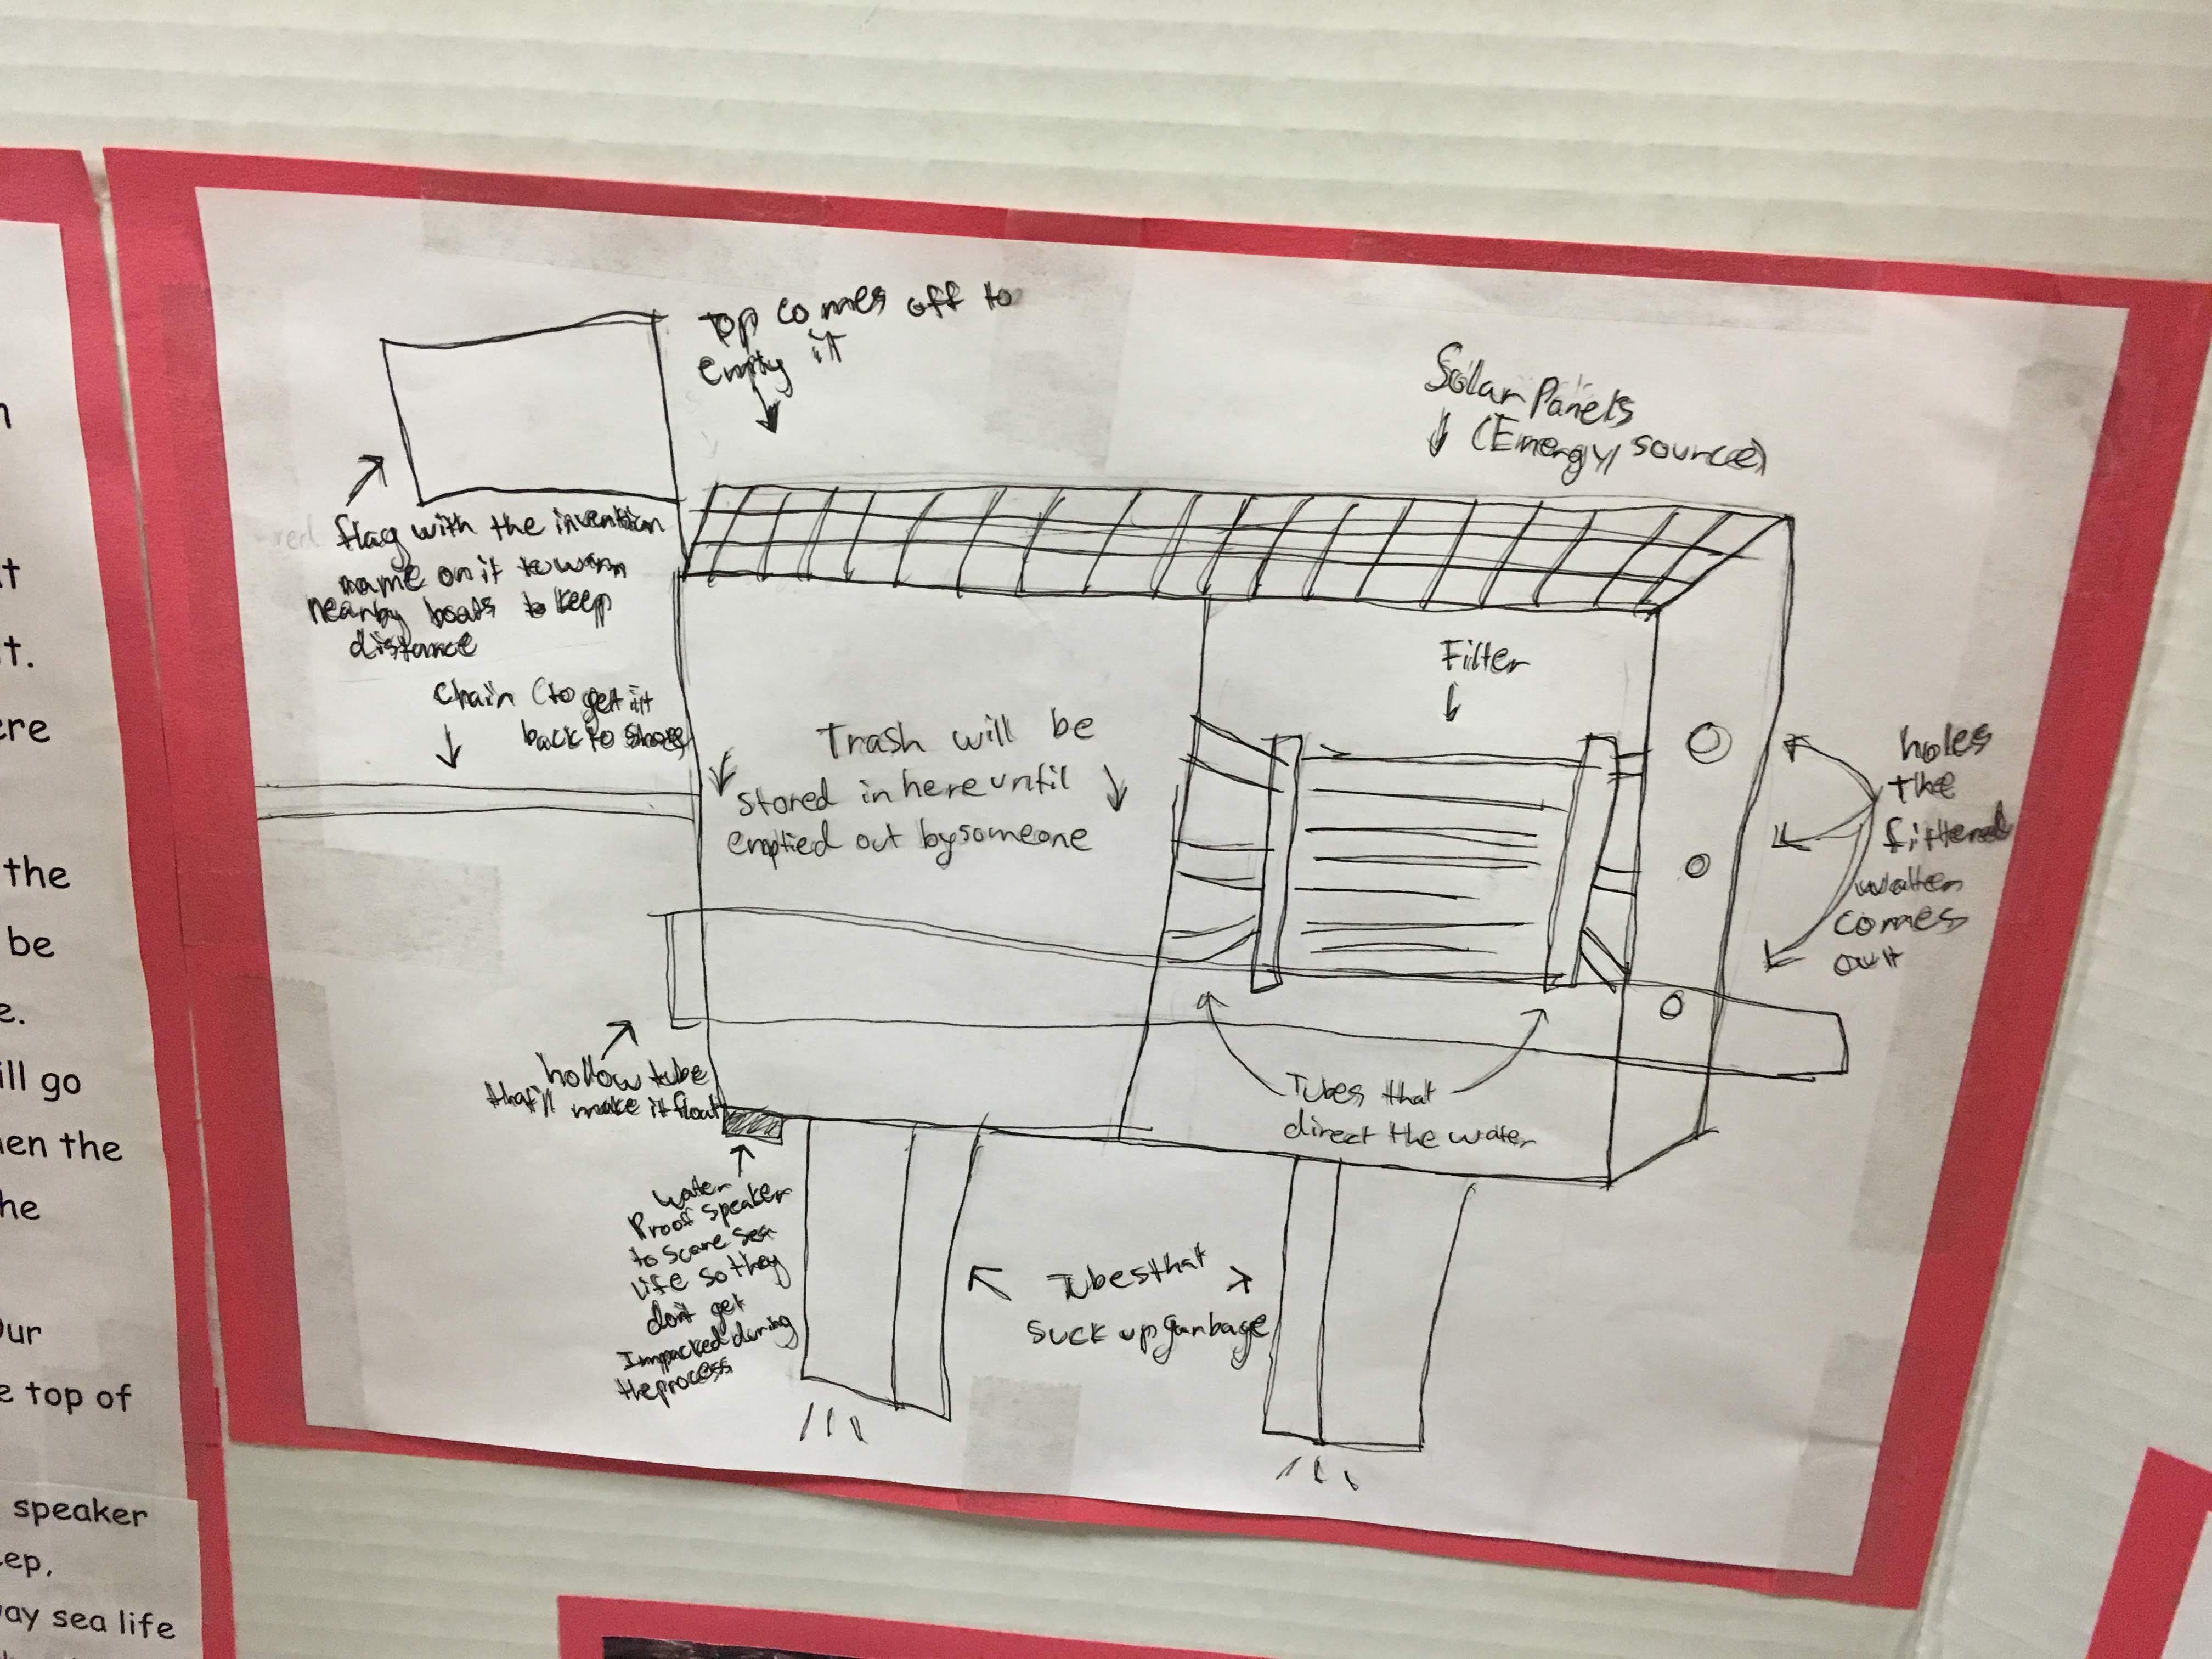 Top comes off to
empty it
Solar Panels
(Energy source)
flag with the invention
name on it to warn
nearby boats to keep
distance
Chain (to get it
back to shore)
Filter
Trash will be
stored in here until
emptied out by someone
holes
the
filtered
water
comes
out
hollow tube
that'll make it float
Tubes that
direct the water
water
Proof speaker
to scare sea
life so they
don't get
Impacked during
the process
Tubes that
suck up garbage
t.
the
be
e.
ill go
the
Our
top of
speaker
eep,
sea life